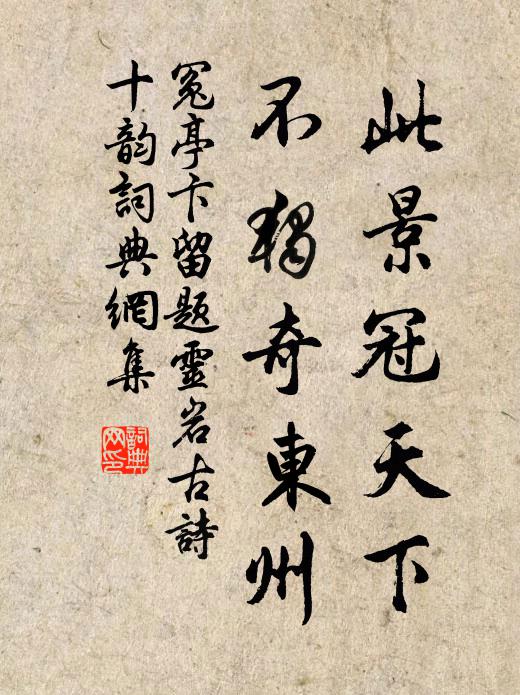 此景冠天下
不獨奇東州
冤亭卞留題靈岩古詩
十韵詞典網集
詞典網印